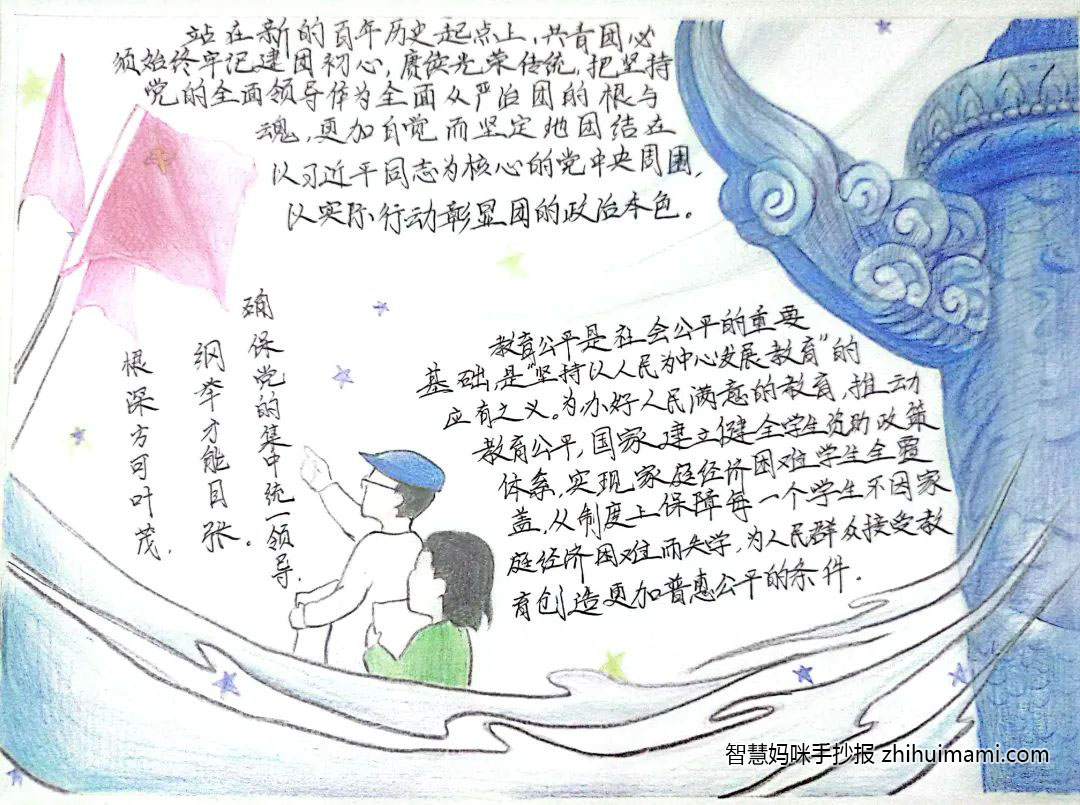 站在新的百年历史起点上，共青团必
须始终牢记建团初心，赓续光荣传统，把坚持
党的全面领导作为全面从严治团的根与
魂，更加自觉而坚定地团结在
以习近平同志为核心的党中央周围，
以实际行动彰显团的政治本色。
确保党的集中统一领导.
纲举才能目张。
根深方可叶茂，
教育公平是社会公平的重要
基础，是“坚持以人民为中心发展教育”的
应有之义。为办好人民满意的教育，推动
教育公平，国家建立健全学生资助政策
体系，实现家庭经济困难学生全覆
盖，从制度上保障每一个学生不因家
庭经济困难而失学，为人民群众接受教
育创造更加普惠公平的条件.
智慧妈咪手抄报 zhihuimami.com